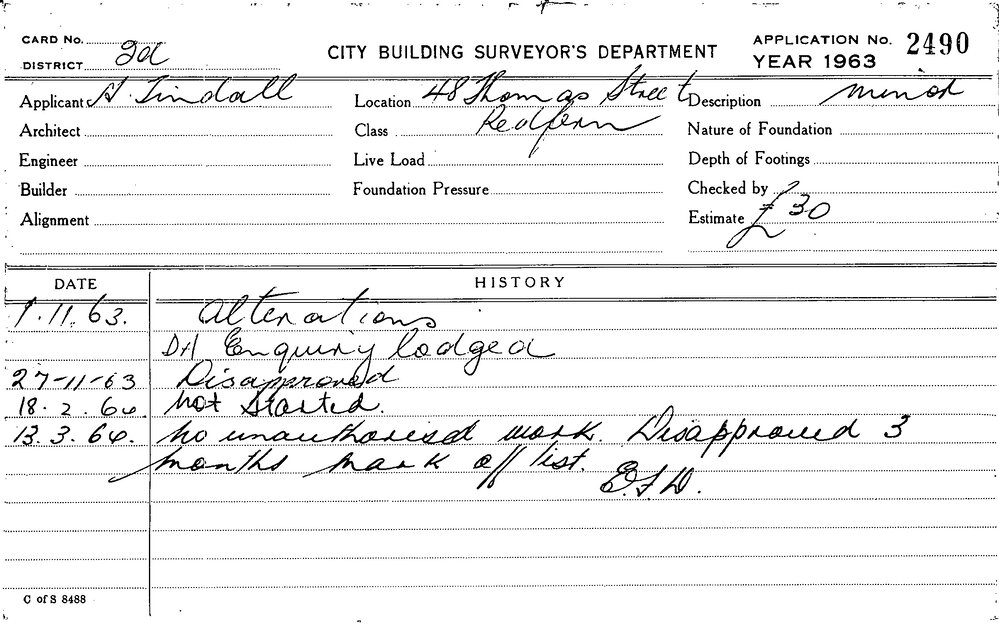 CARD No.
DISTRICT 2d
CITY BUILDING SURVEYOR'S DEPARTMENT
APPLICATION No. 2490
YEAR 1963
Applicant A. Tindall
Location 48 Thomas Street
Redfern
Description minor
Architect
Class
Nature of Foundation
Engineer
Live Load
Depth of Footings
Builder
Foundation Pressure
Checked by
Alignment
Estimate £30
DATE HISTORY
1.11.63. Alterations
DA Enquiry lodged
27-11-63 Disapproved
18.2.64. Not started.
13.3.64. No unauthorised work. Disapproved 3
months mark off list.
C of S 8488